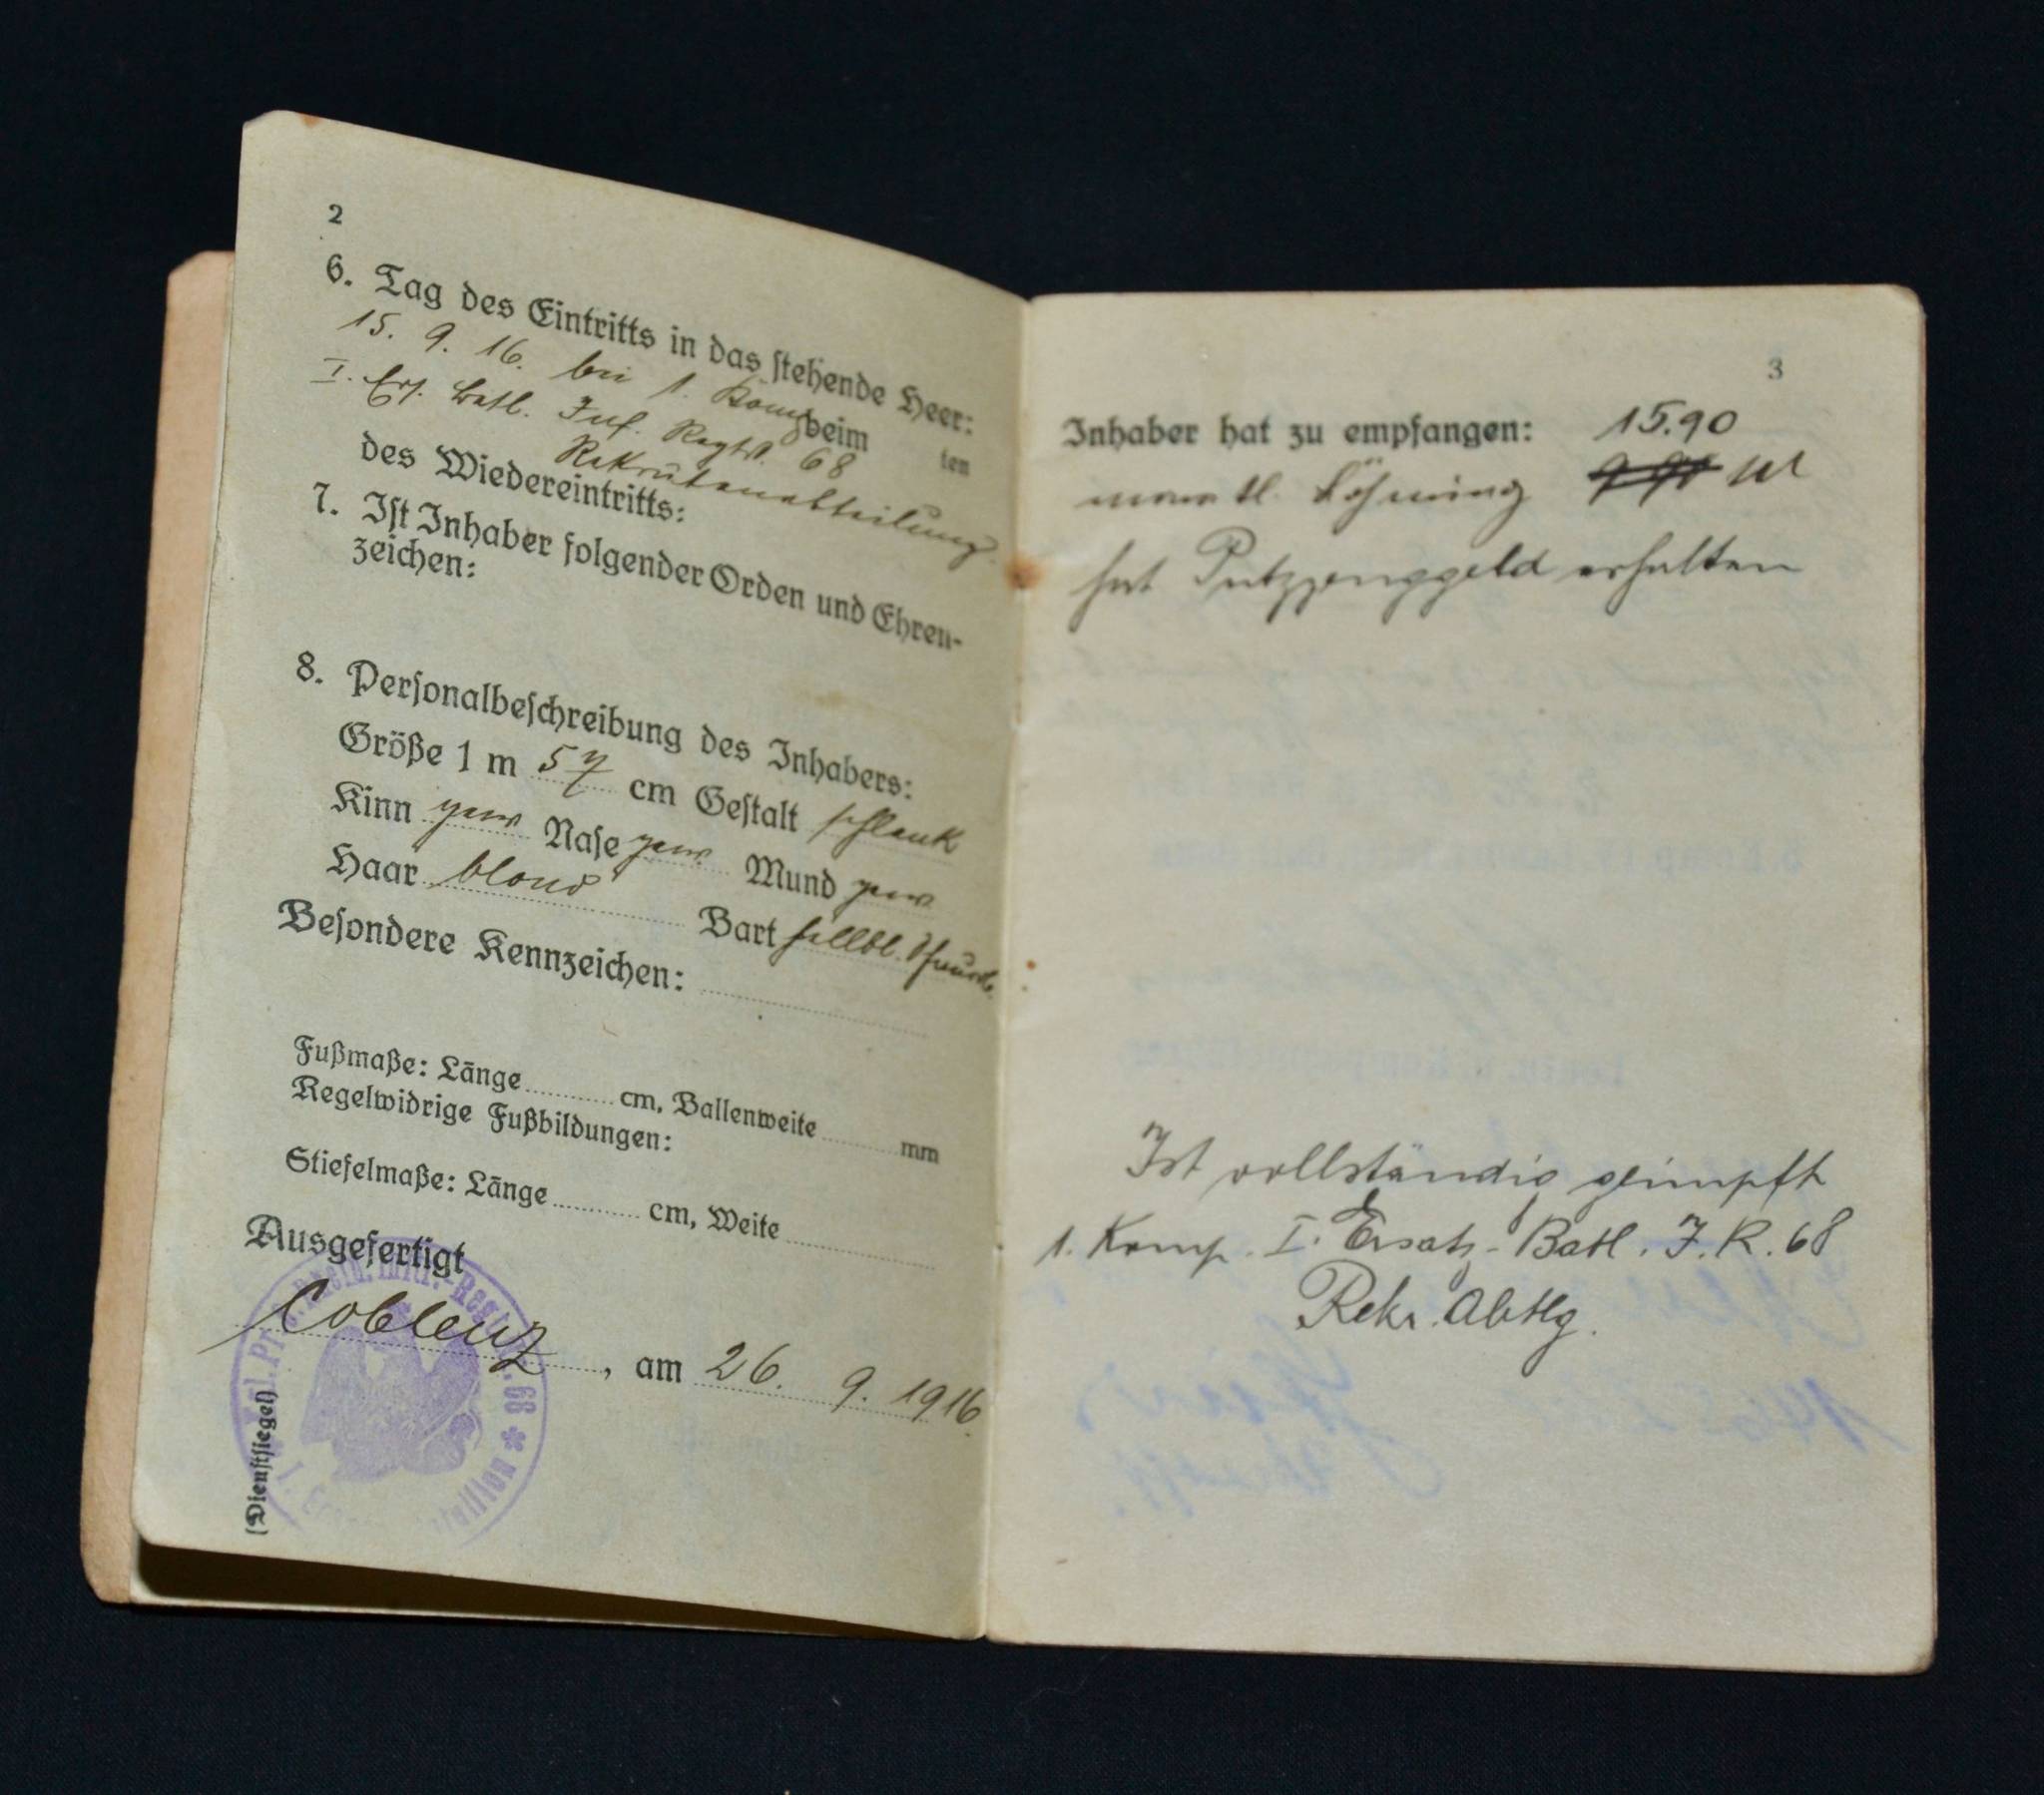 2
6. Tag des Eintritts in das stehende Heer:
15. 9. 16. bei 1. Komp beim ten
I. Ers. Batl. Inf. Regts. 68
Rekrutenabteilung.
des Wiedereintritts:
7. Ist Inhaber folgender Orden und Ehren-
zeichen:
8. Personalbeschreibung des Inhabers:
Größe 1 m 57 cm Gestalt schlank
Kinn gew Nase gew. Mund gew.
Haar blond Bart
Besondere Kennzeichen:
Fußmaße: Länge cm, Ballenweite mm
Regelwidrige Fußbildungen:
Stiefelmaße: Länge cm, Weite
Ausgefertigt
Coblenz, am 26. 9. 1916
(Dienstsiegel)
3
Inhaber hat zu empfangen: 15.90
monatl. Löhnung M
hat Putzzeuggeld erhalten
Ist vollständig geimpft
1. Komp. I. Ersatz-Batl. J. R. 68
Rekr. Abtlg.